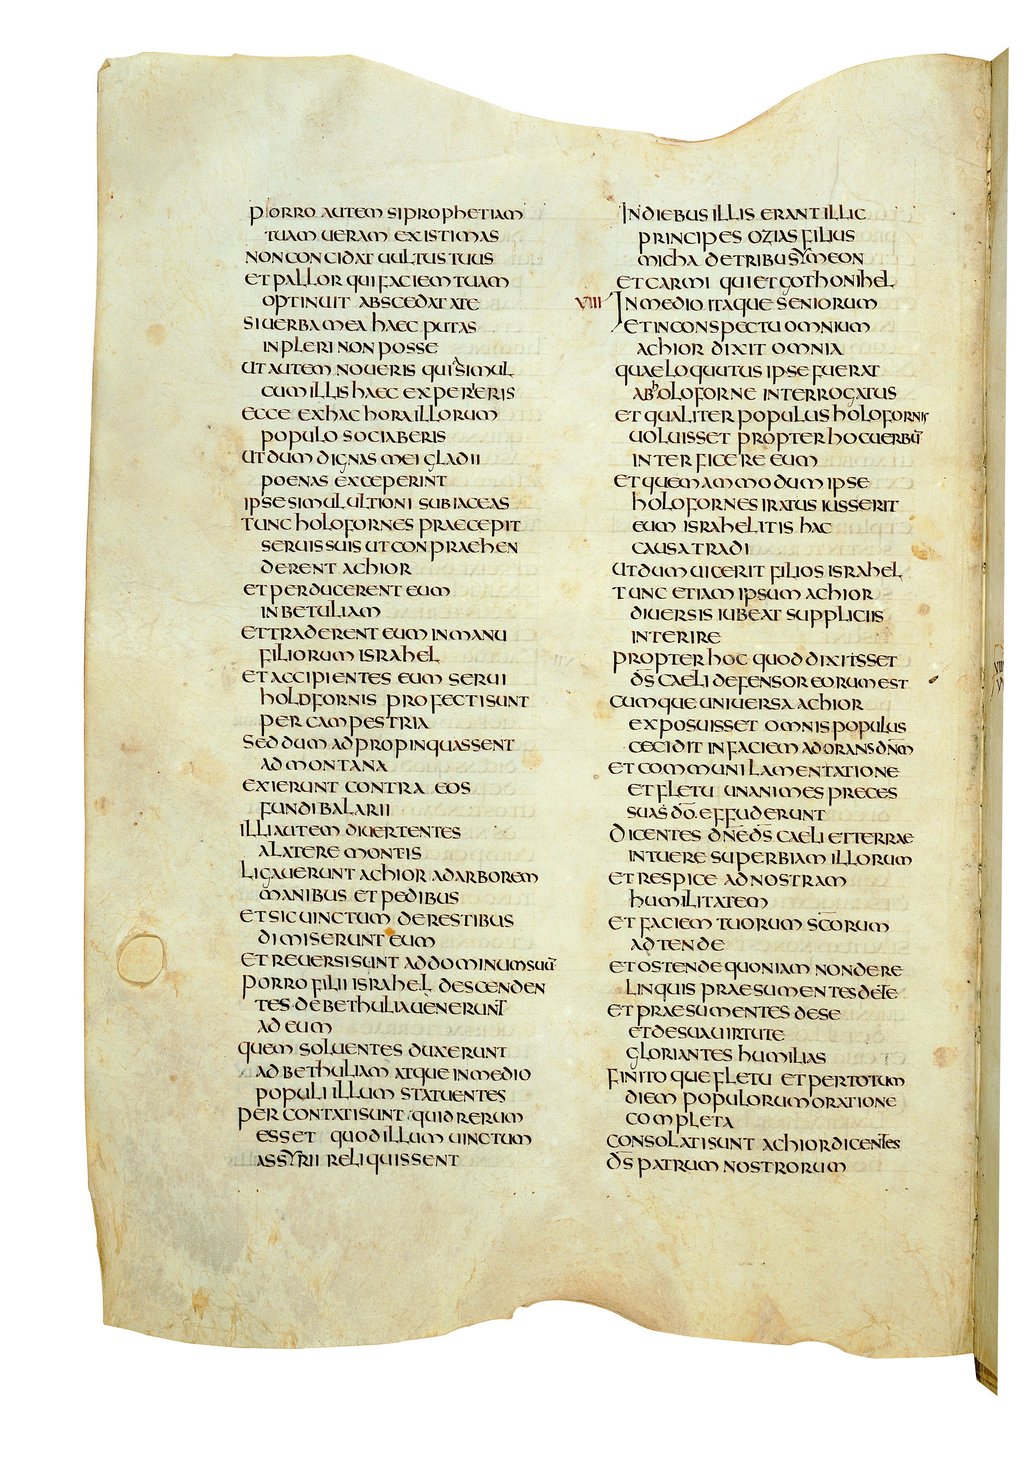 PORRO AUTEM SI PROPHETIAM
TUAM UERAM EXISTIMAS
NON CONCIDAT UULTUS TUUS
ET PALLOR QUI FACIEM TUAM
OPTINUIT ABSCEDAT A TE
SI UERBA MEA HAEC PUTAS
INPLERI NON POSSE
UT AUTEM NOUERIS QUI SIMUL
CUM ILLIS HAEC EXPERIERIS
ECCE EX HAC HORA ILLORUM
POPULO SOCIABERIS
UT DUM DIGNAS MEI GLADII
POENAS EXCEPERINT
IPSE SIMUL ULTIONI SUBIACEAS
TUNC HOLOFORNES PRAECEPIT
SERUIS SUIS UT CONPRAEHEN
DERENT ACHIOR
ET PERDUCERENT EUM
IN BETULIAM
ET TRADERENT EUM IN MANU
FILIORUM ISRAHEL
ET ACCIPIENTES EUM SERUI
HOLOFORNIS PROFECTI SUNT
PER CAMPESTRIA
SED DUM ADPROPINQUASSENT
AD MONTANA
EXIERUNT CONTRA EOS
FUNDIBALARII
ILLI AUTEM DIUERTENTES
A LATERE MONTIS
LIGAUERUNT ACHIOR AD ARBOREM
MANIBUS ET PEDIBUS
ET SIC UINCTUM DE RESTIBUS
DIMISERUNT EUM
ET REUERSI SUNT AD DOMINUM SUŪ
PORRO FILII ISRAHEL DESCENDEN
TES DE BETHULIA UENERUNT
AD EUM
QUEM SOLUENTES DUXERUNT
AD BETHULIAM ATQUE IN MEDIO
POPULI ILLUM STATUENTES
PERCONTATI SUNT QUID RERUM
ESSET QUOD ILLUM UINCTUM
ASSYRII RELIQUISSENT
IN DIEBUS ILLIS ERANT ILLIC
PRINCIPES OZIAS FILIUS
MICHA DE TRIBU SYMEON
ET CARMI QUI ET GOTHONIHEL
VIII IN MEDIO ITAQUE SENIORUM
ET IN CONSPECTU OMNIUM
ACHIOR DIXIT OMNIA
QUAE LOQUUTUS IPSE FUERAT
AB HOLOFORNE INTERROGATUS
ET QUALITER POPULUS HOLOFORNIS
UOLUISSET PROPTER HOC UERBŪ
INTERFICERE EUM
ET QUEMAMMODUM IPSE
HOLOFORNES IRATUS IUSSERIT
EUM ISRAHELITIS HAC
CAUSA TRADI
UT DUM UICERIT FILIOS ISRAHEL
TUNC ETIAM IPSUM ACHIOR
DIUERSIS IUBEAT SUPPLICIIS
INTERIRE
PROPTER HOC QUOD DIXISSET
D̄S CAELI DEFENSOR EORUM EST
CUMQUE UNIUERSA ACHIOR
EXPOSUISSET OMNIS POPULUS
CECIDIT IN FACIEM ADORANS DN̄M
ET COMMUNI LAMENTATIONE
ET FLETU UNANIMES PRECES
SUAS DŌ EFFUDERUNT
DICENTES DN̄E D̄S CAELI ET TERRAE
INTUERE SUPERBIAM ILLORUM
ET RESPICE AD NOSTRAM
HUMILITATEM
ET FACIEM TUORUM SC̄ORUM
ADTENDE
ET OSTENDE QUONIAM NON DERE
LINQUIS PRAESUMENTES DE TE
ET PRAESUMENTES DE SE
ET DE SUA UIRTUTE
GLORIANTES HUMILIAS
FINITO QUE FLETU ET PER TOTUM
DIEM POPULORUM ORATIONE
COMPLETA
CONSOLATI SUNT ACHIOR DICENTES
D̄S PATRUM NOSTRORUM